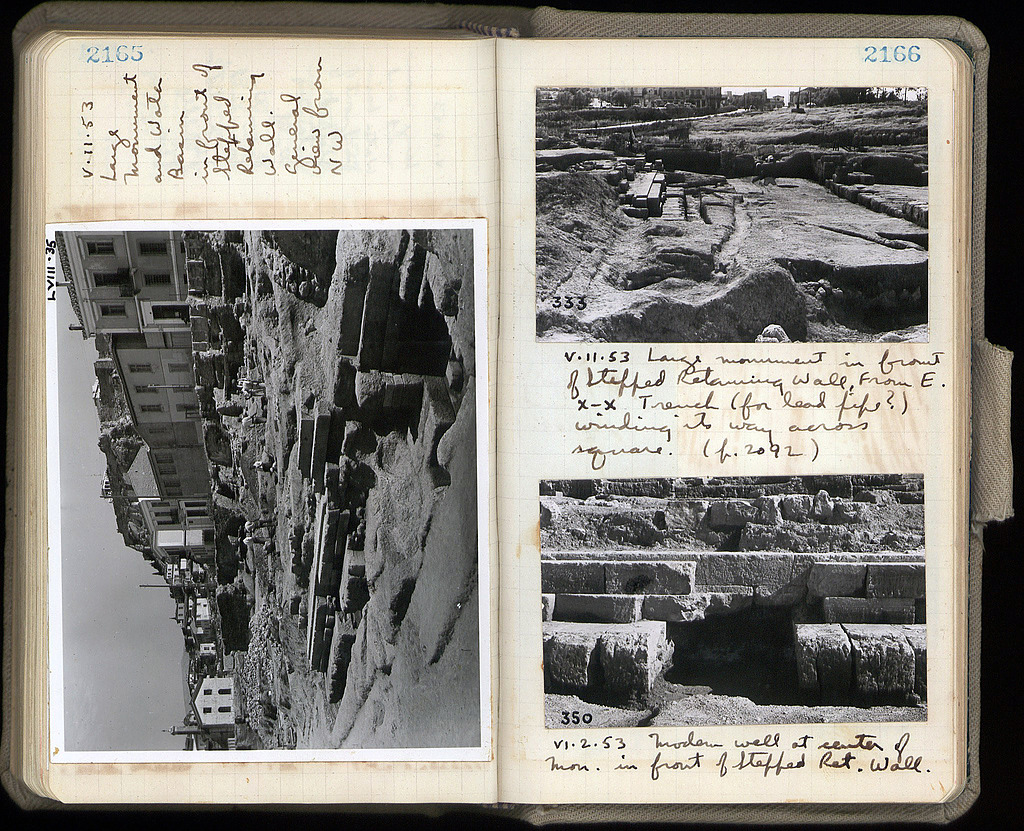 2165
V·11·53
Large
monument
and Water
Basin
in front of
Stepped
Retaining
Wall.
General
View from
NW
LVIII·35
2166
333
V·11·53 Large monument in front
of Stepped Retaining Wall, From E.
x-x Trench (for lead pipe?)
winding its way across
square. (p. 2092)
350
VI·2·53 Modern well at center of
Mon. in front of Stepped Ret. Wall.